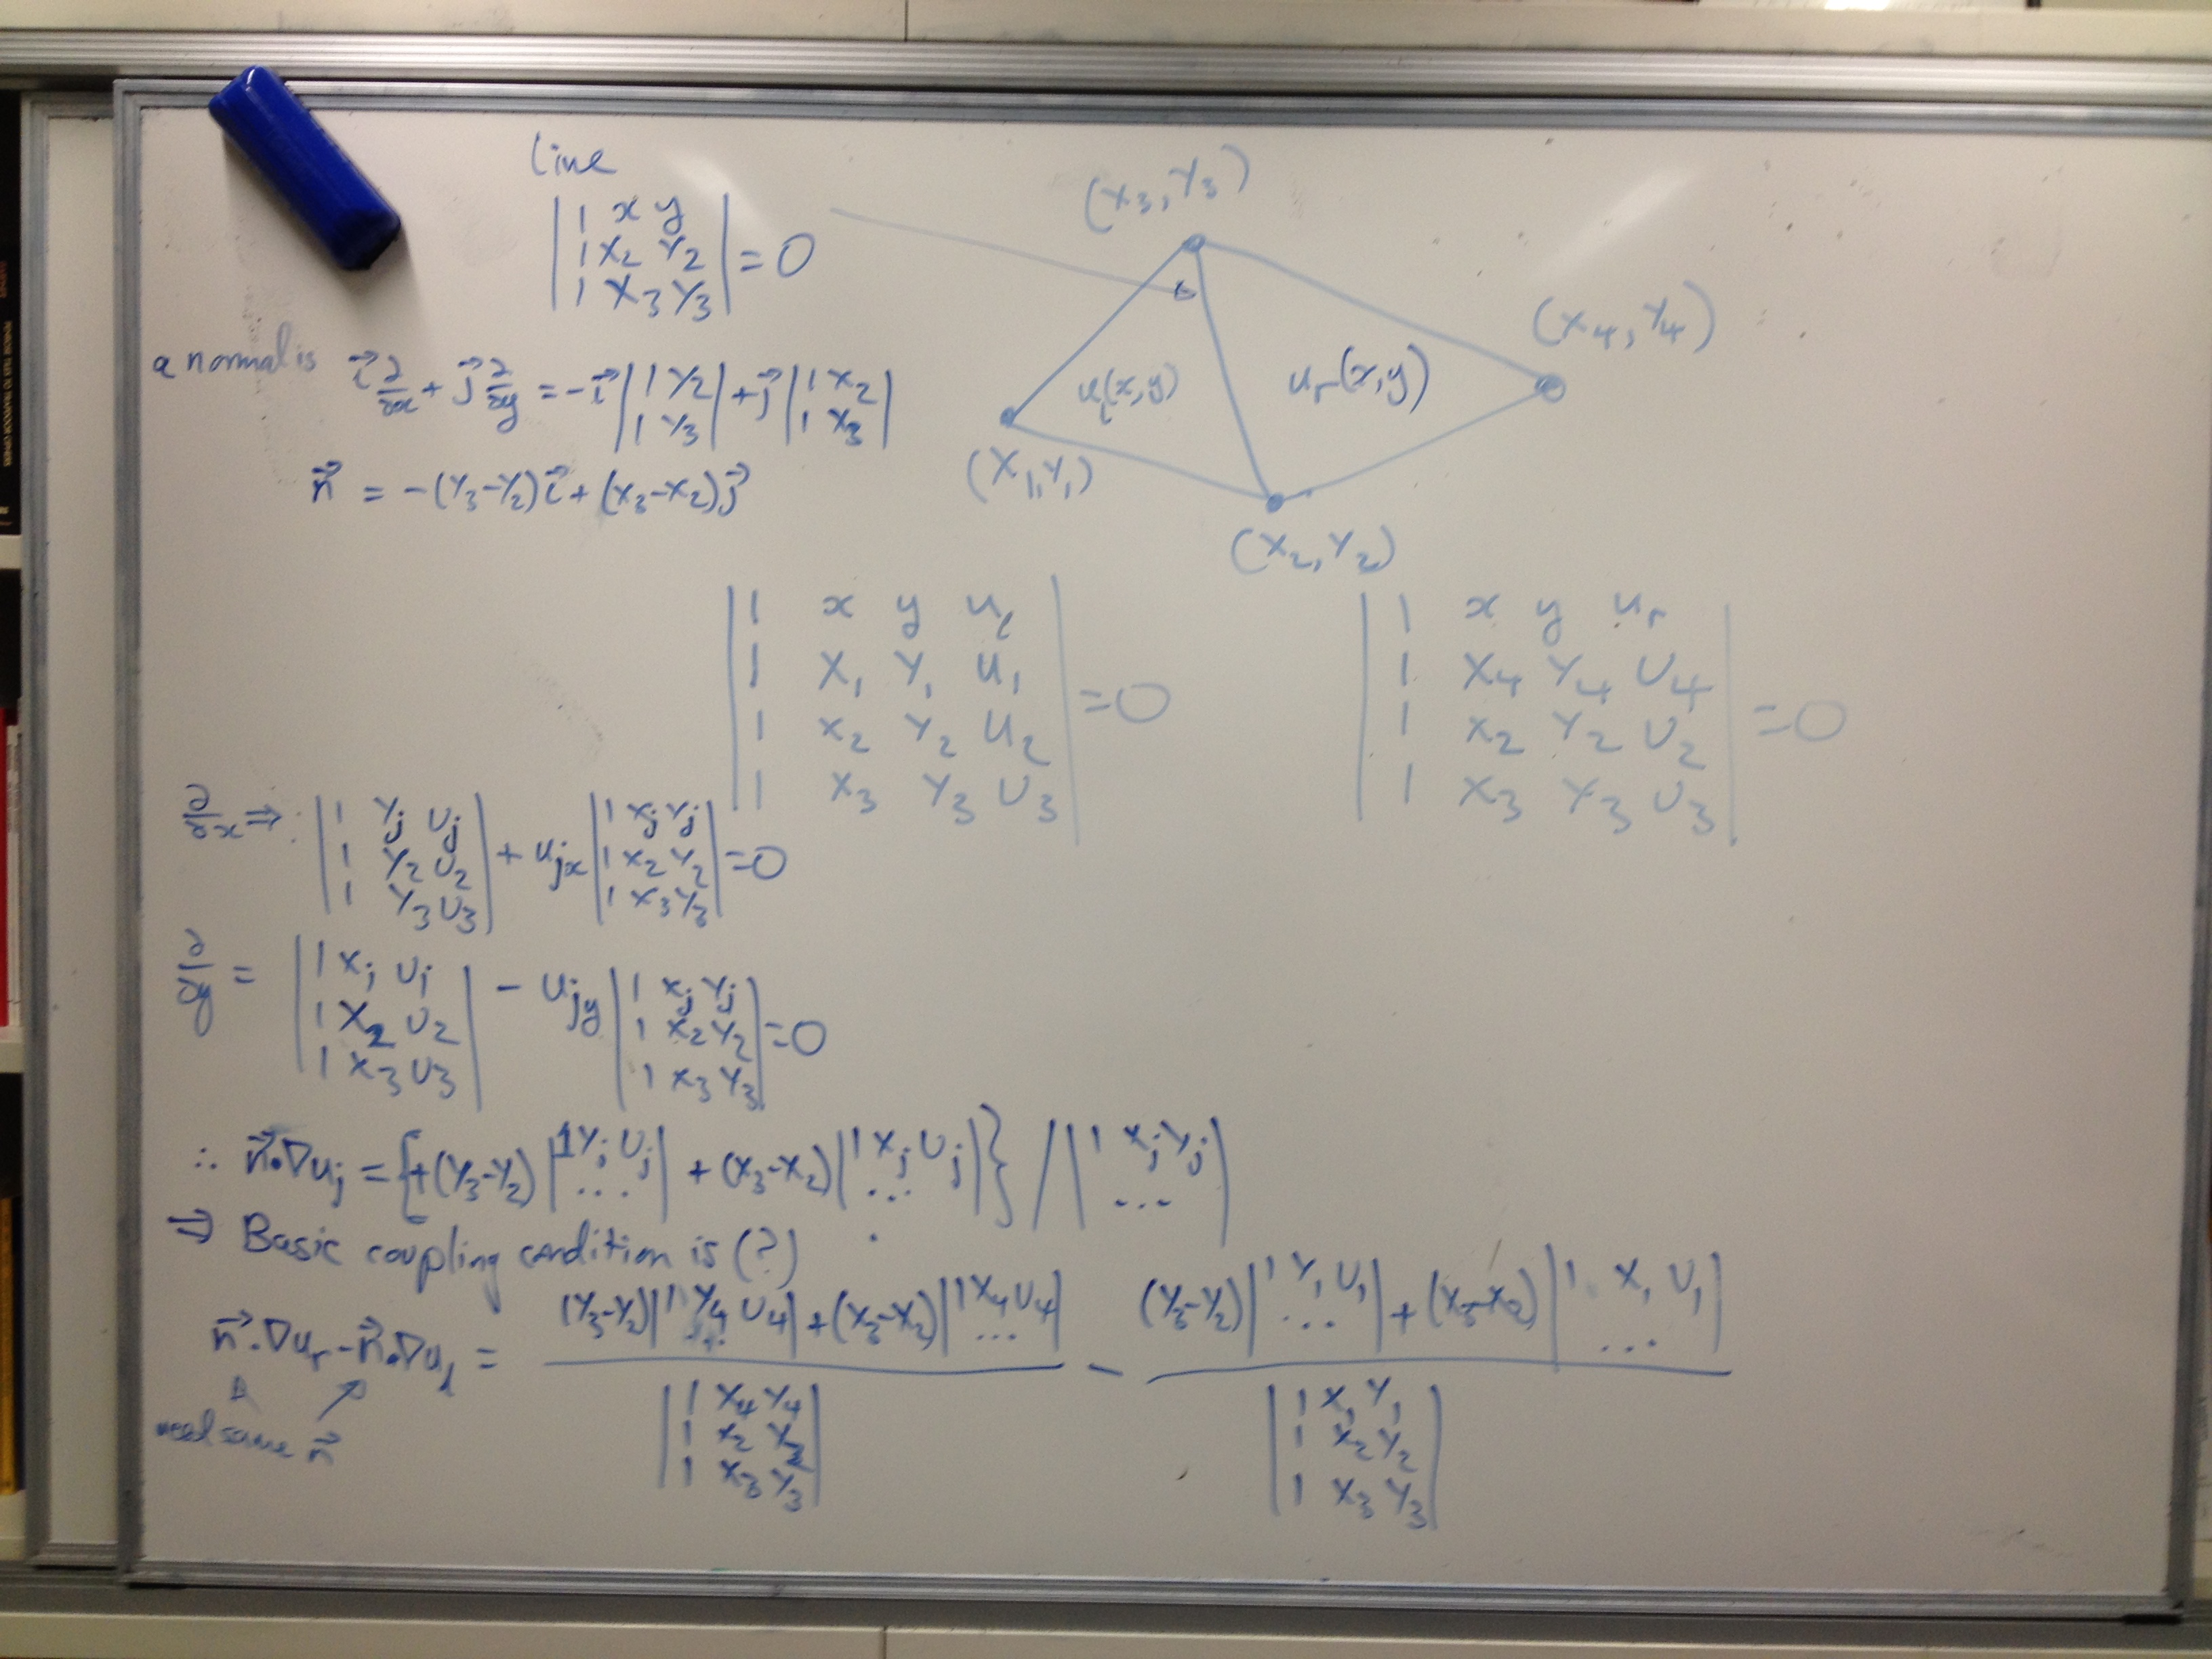 line
| 1 x y |
| 1 X2 Y2 | = 0
| 1 X3 Y3 |
(X3, Y3)
(X4, Y4)
a normal is i⃗ ∂/∂x + j⃗ ∂/∂y = -i⃗ | 1 Y2 ; 1 Y3 | + j⃗ | 1 X2 ; 1 X3 |
uₗ(x,y)
uᵣ(x,y)
n⃗ = -(Y3-Y2)i⃗ + (X3-X2)j⃗
(X1, Y1)
(X2, Y2)
| 1 x y uₗ |
| 1 X1 Y1 U1 |
| 1 X2 Y2 U2 | = 0
| 1 X3 Y3 U3 |
| 1 x y uᵣ |
| 1 X4 Y4 U4 |
| 1 X2 Y2 U2 | = 0
| 1 X3 Y3 U3 |
∂/∂x ⇒: | 1 Yj Uj ; 1 Y2 U2 ; 1 Y3 U3 | + ujx | 1 Xj Yj ; 1 X2 Y2 ; 1 X3 Y3 | = 0
∂/∂y = | 1 Xj Uj ; 1 X2 U2 ; 1 X3 U3 | - ujy | 1 Xj Yj ; 1 X2 Y2 ; 1 X3 Y3 | = 0
∴ n⃗·∇uj = {+(Y3-Y2) | 1 Yj Uj ; ... | + (X3-X2) | 1 Xj Uj ; ... |} / | 1 Xj Yj ; ... |
⇒ Basic coupling condition is (?)
n⃗·∇uᵣ - n⃗·∇uₗ = ((Y3-Y2) | 1 Y4 U4 ; ... | + (X3-X2) | 1 X4 U4 ; ... |) / | 1 X4 Y4 ; 1 X2 Y2 ; 1 X3 Y3 | - ((Y3-Y2) | 1 Y1 U1 ; ... | + (X3-X2) | 1 X1 U1 ; ... |) / | 1 X1 Y1 ; 1 X2 Y2 ; 1 X3 Y3 |
need same n⃗